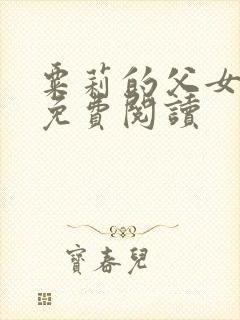 粟莉的父女
免費閱讀
寶春兒